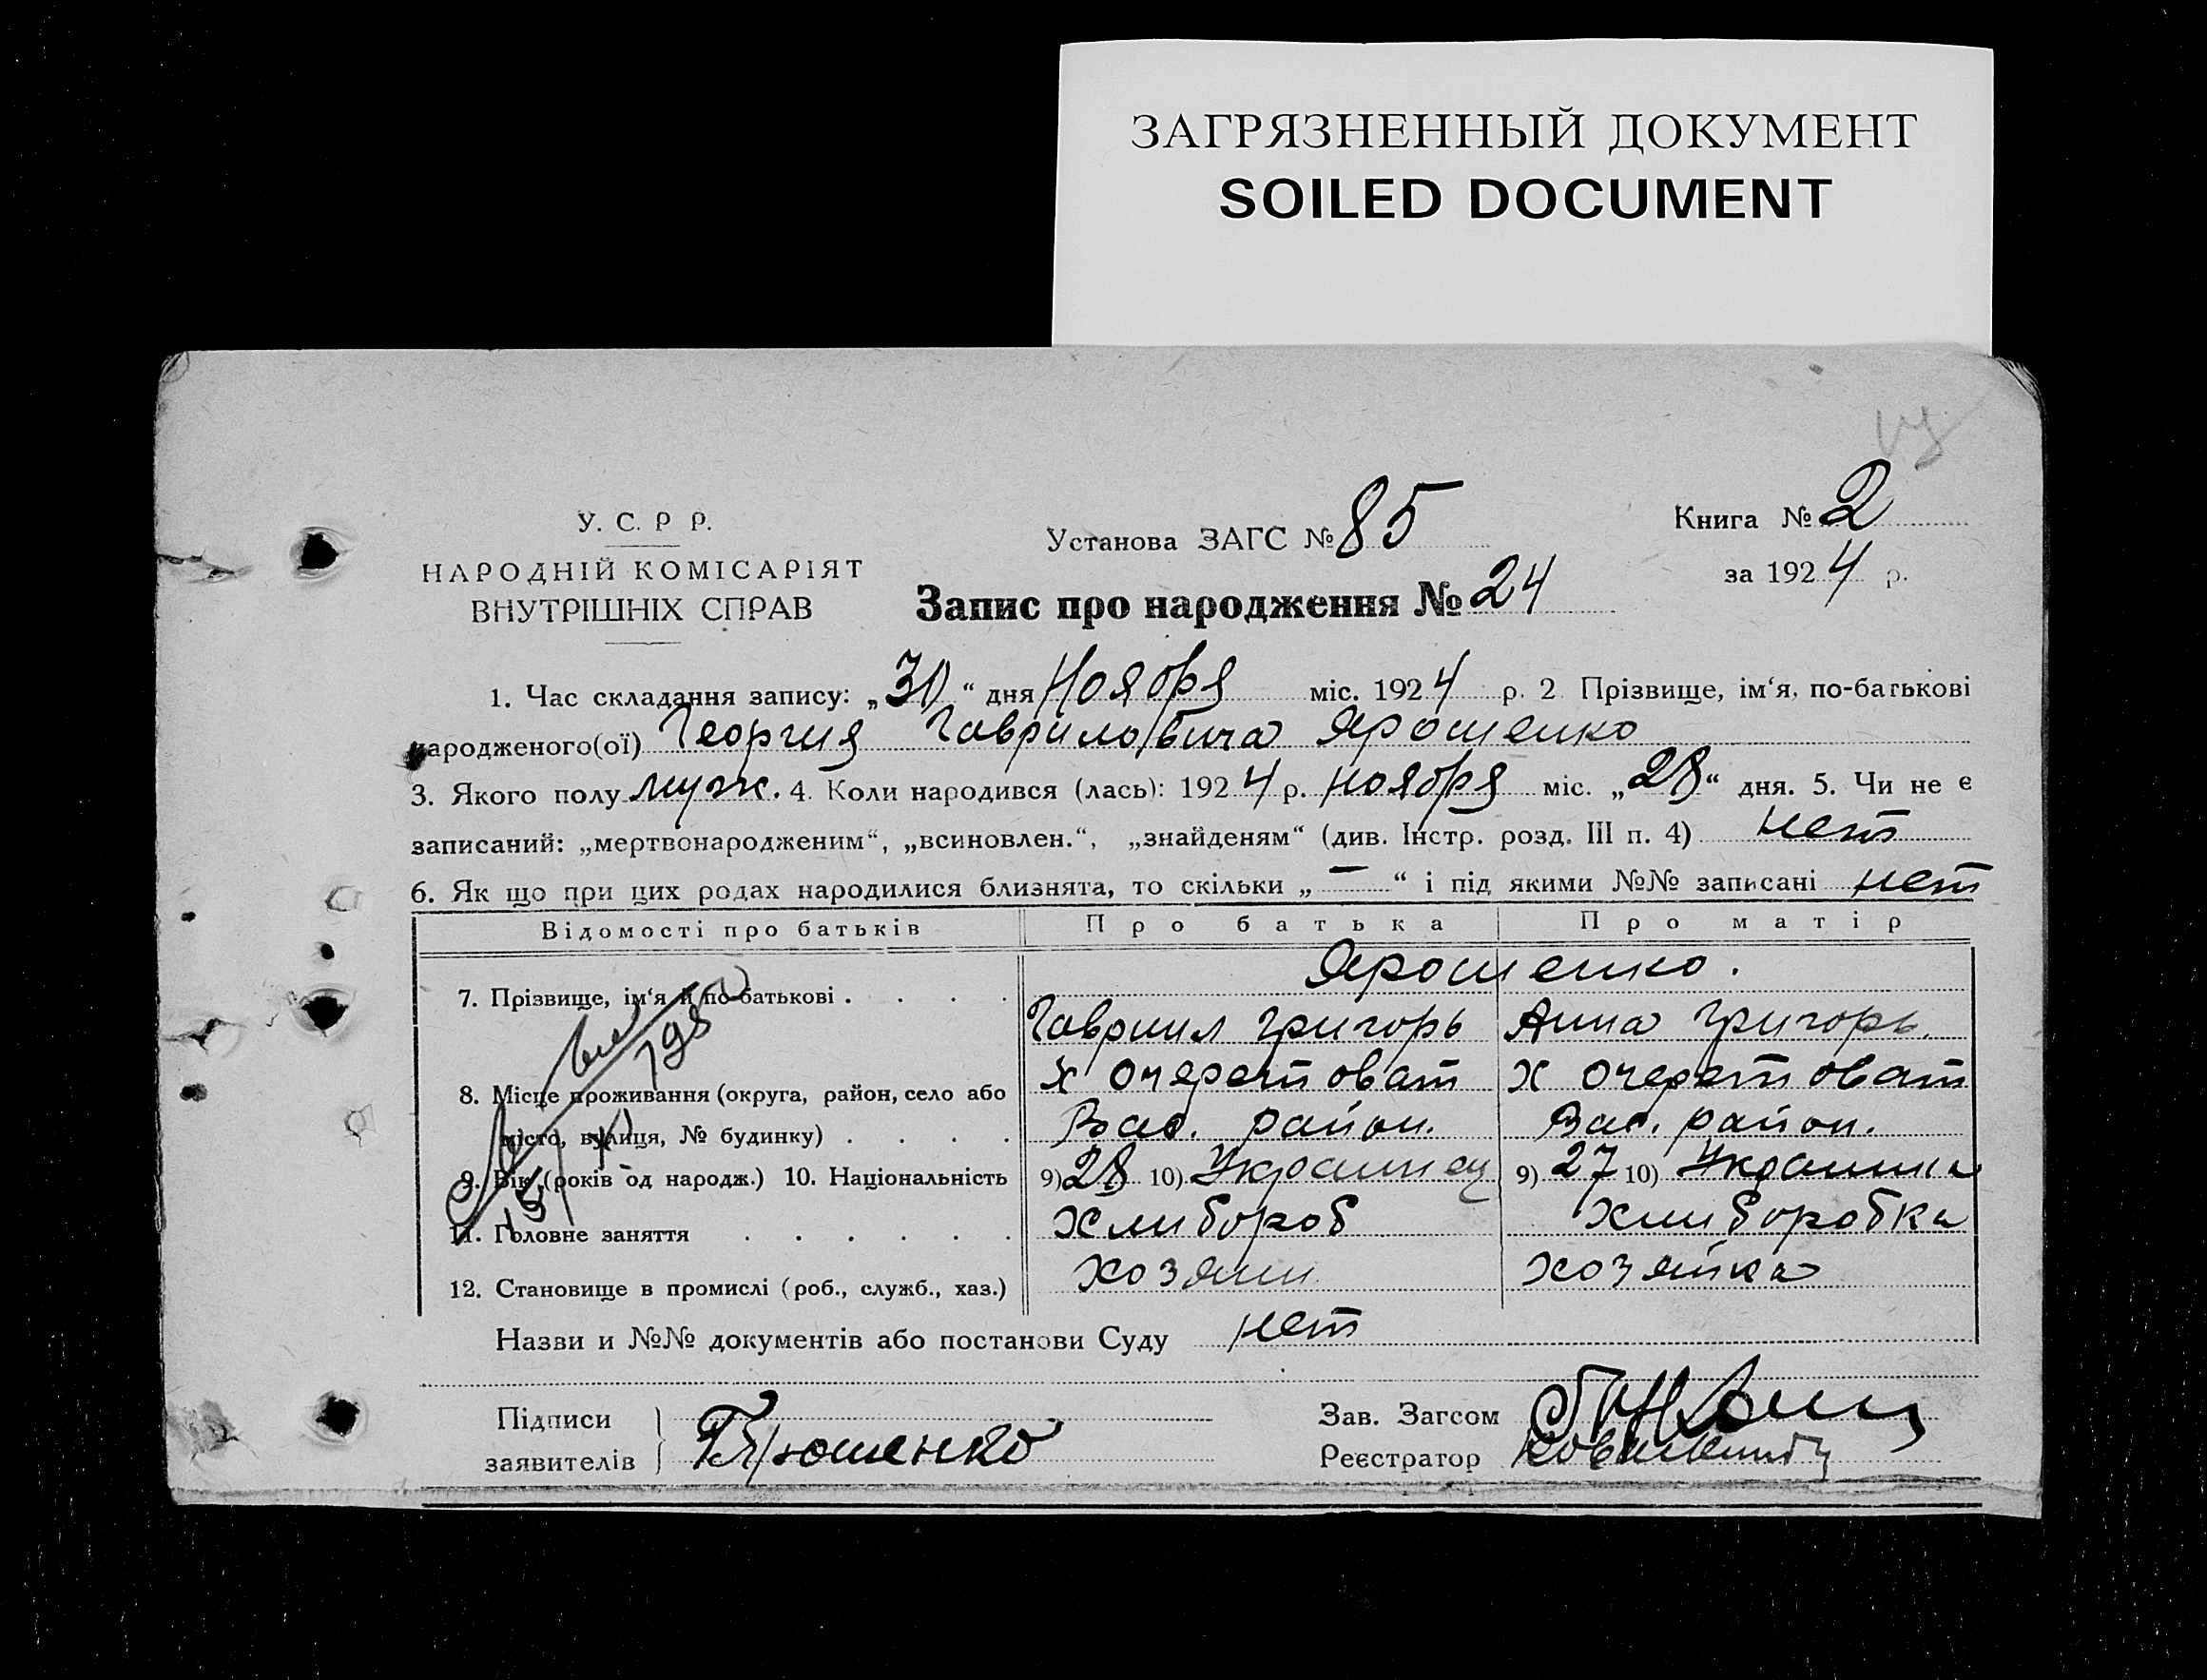 ЗАГРЯЗНЕННЫЙ ДОКУМЕНТ
SOILED DOCUMENT
У. С. Р Р.
НАРОДНІЙ КОМІСАРІЯТ
ВНУТРІШНІХ СПРАВ
Установа ЗАГС № 85
Книга № 2
за 1924 р.
Запис про народження № 24
1. Час складання запису: „30“ дня Ноября міс. 1924 р. 2 Прізвище, ім‘я, по-батькові
народженого(ої) Георгия Гавриловича Ярошенко
3. Якого полу муж. 4. Коли народився (лась): 1924 р. ноября міс. „28“ дня. 5. Чи не є
записаний: „мертвонародженим“, „всиновлен.“, „знайденям“ (див. Інстр. розд. III п. 4) нет
6. Як що при цих родах народилися близнята, то скільки „—“ і під якими №№ записані нет
Відомості про батьків Про батька Про матір
7. Прізвище, ім‘я й по-батькові . . . . Ярошенко.
Гавриил Григорь Анна Григорь.
8. Місце проживання (округа, район, село або х Очеретоват х Очеретоват
місто, вулиця, № будинку) . . . . Вас. район. Вас. район.
9. Вік (років од народж.) 10. Національність 9) 28 10) Украинец 9) 27 10) Украинка
11. Головне заняття . . . . . . Хлибороб Хлиборобка
12. Становище в промислі (роб., служб., хаз.) хозяин хозяйка
Назви и №№ документів або постанови Суду нет
Підписи
заявителів
Г Ярошенко
Зав. Загсом
Реєстратор